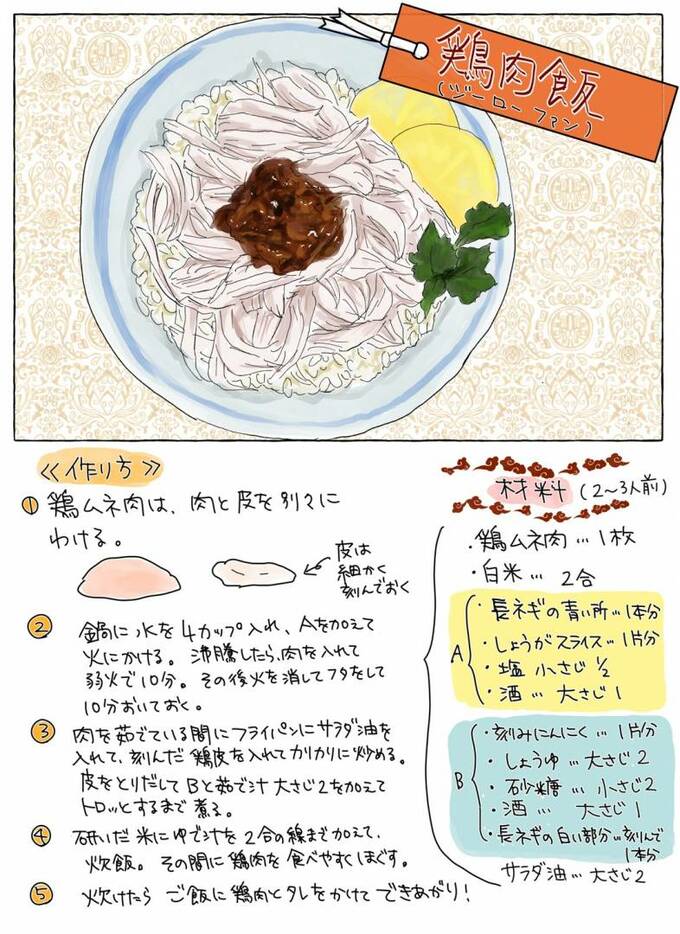 鶏肉飯
(ジーローファン)
≪作り方≫
① 鶏ムネ肉は、肉と皮を別々に
わける。
皮は
細かく
刻んでおく
② 鍋に水を4カップ入れ、Aを加えて
火にかける。沸騰したら、肉を入れて
弱火で10分。その後火を消してフタをして
10分おいておく。
③ 肉を茹でている間にフライパンにサラダ油を
入れて、刻んだ鶏皮を入れてカリカリに炒める。
皮をとりだしてBと茹で汁大さじ2を加えて
トロッとするまで煮る。
④ 研いだ米にゆで汁を2合の線まで加えて、
炊飯。その間に鶏肉を食べやすくほぐす。
⑤ 炊けたら ご飯に鶏肉とタレをかけてできあがり!
材料(2〜3人前)
・鶏ムネ肉…1枚
・白米…2合
A
・長ネギの青い所…1本分
・しょうがスライス…1片分
・塩 小さじ1/2
・酒…大さじ1
B
・刻みにんにく…1片分
・しょうゆ…大さじ2
・砂糖…小さじ2
・酒…大さじ1
・長ネギの白い部分…刻んで
1本分
サラダ油…大さじ2